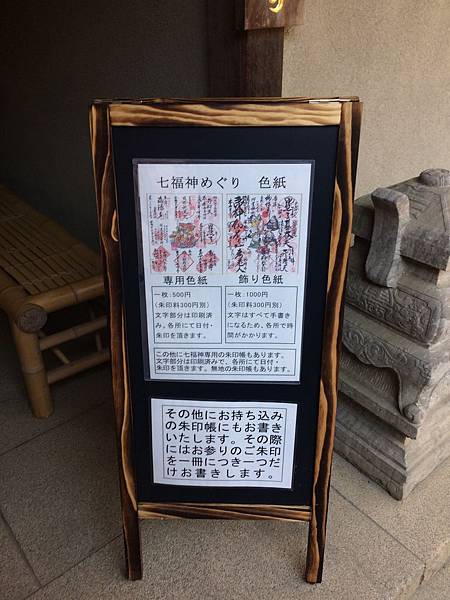 七福神めぐり 色紙
専用色紙
一枚:500円
(朱印料300円別)
文字部分は印刷済
み。各所にて日付・
朱印を頂きます。
飾り色紙
一枚:1000円
(朱印料300円別)
文字はすべて手書き
になるため、各所で時
間がかかります。
この他に七福神専用の朱印帳もあります。
文字部分は印刷済みで、各所にて日付・
朱印を頂きます。無地の朱印帳もあります。
その他にお持ち込み
の朱印帳にもお書き
いたします。その際
にはお参りのご朱印
を一冊につき一つだ
けお書きします。